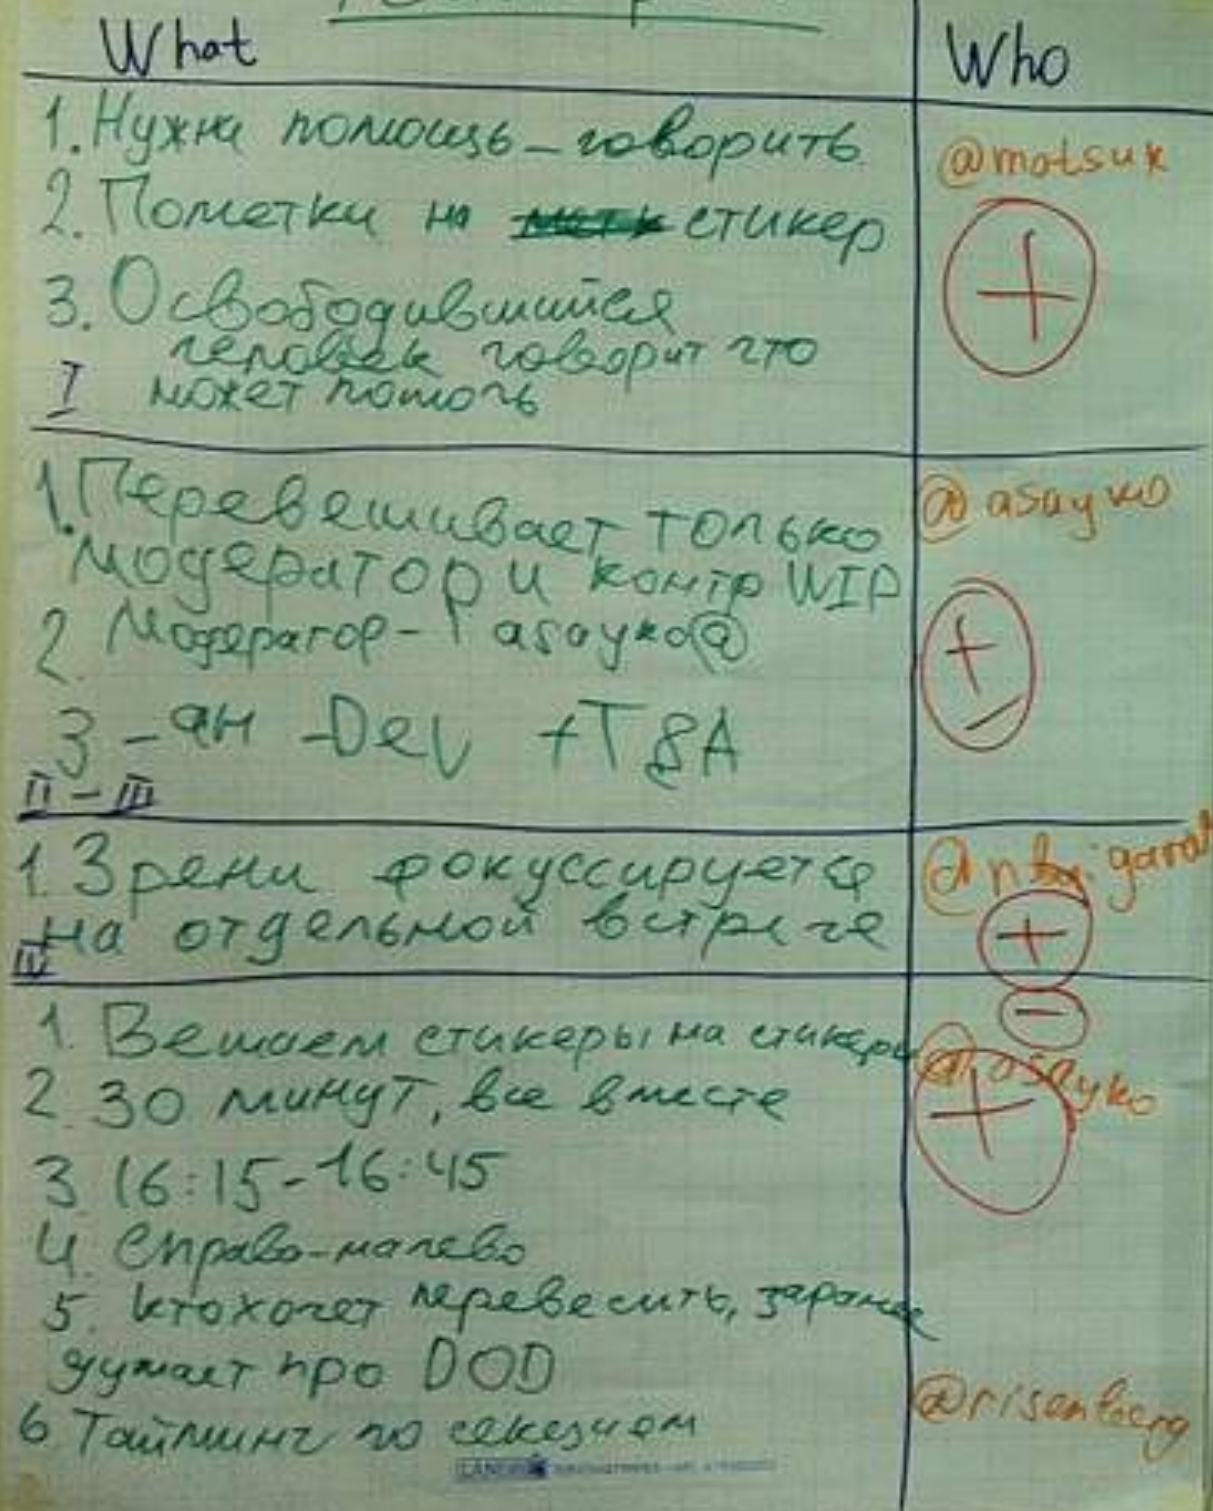 What
Who
1. Нужна помощь - говорить
@matsuk
2. Пометки на стикер
3. Освободившийся
человек говорит что
может помочь
I
+
1. Перевешивает только
модератор и контр WIP
@asayko
2 Модератор - asayko@
3 - ан - Dev + T&A
II - III
±
1. Зрени фокуссируется
на отдельной встрече
IV
+
−
1. Вешаем стикеры на стикеры
@asayko
2 30 минут, все вместе
+
3 16:15-16:45
4. Справо-налево
5. Кто хочет перевесить, заранее
думает про DOD
@risenberg
6 Тайминг по секциям